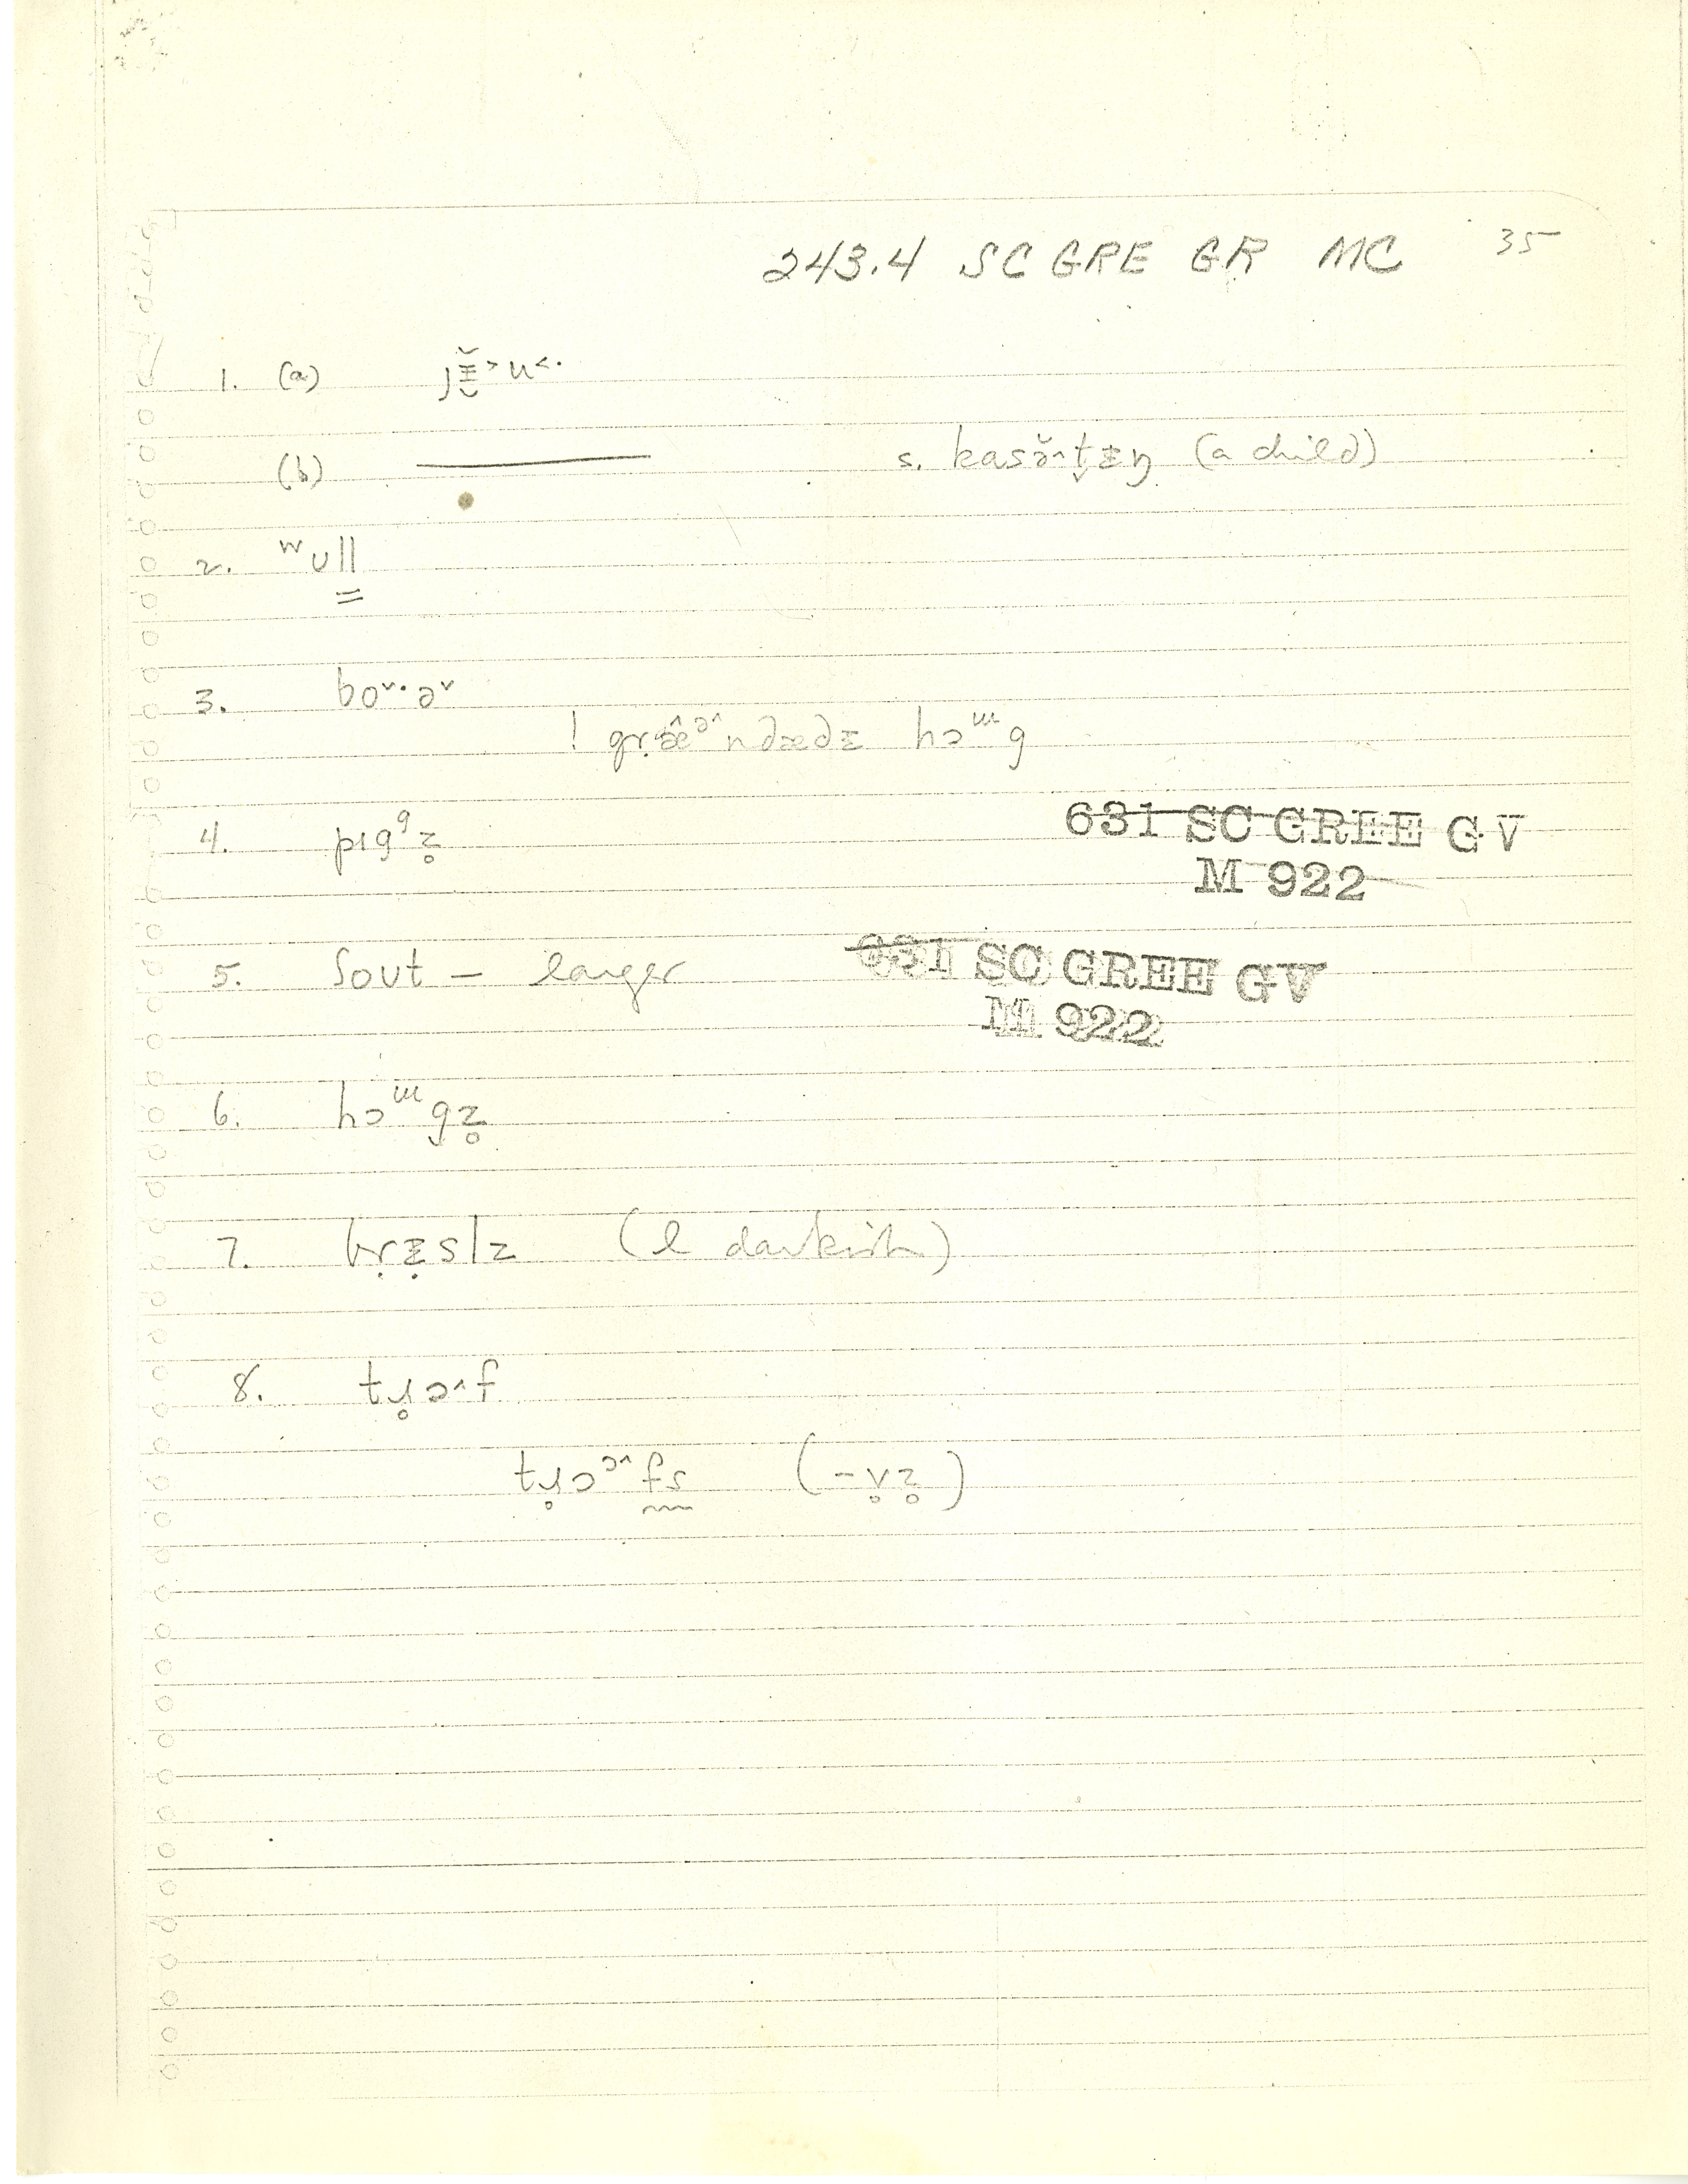 243.4 SC GRE GR MC 35
1. (a) jɪ̵̬̆˃u˂·
(b) ——— s. kasə̆^t̬ᵻŋ (a child)
2. ʷʊll̳
3. boˇ·əˇ
! gṛæ̂ᵊ^ndædᵻ hɔᵚg
4. pɪgᵍz̥
631 SC GREE GV
M 922
5. ʃoʊt – larger
631 SC GREE GV
M 922
6. hɔᵚgz̥
7. bṛᵻ̣slɪ (l darkish)
8. tɹ̥ɔ^f
tɹ̥ɔᵓ^fs (-v̥z̥)